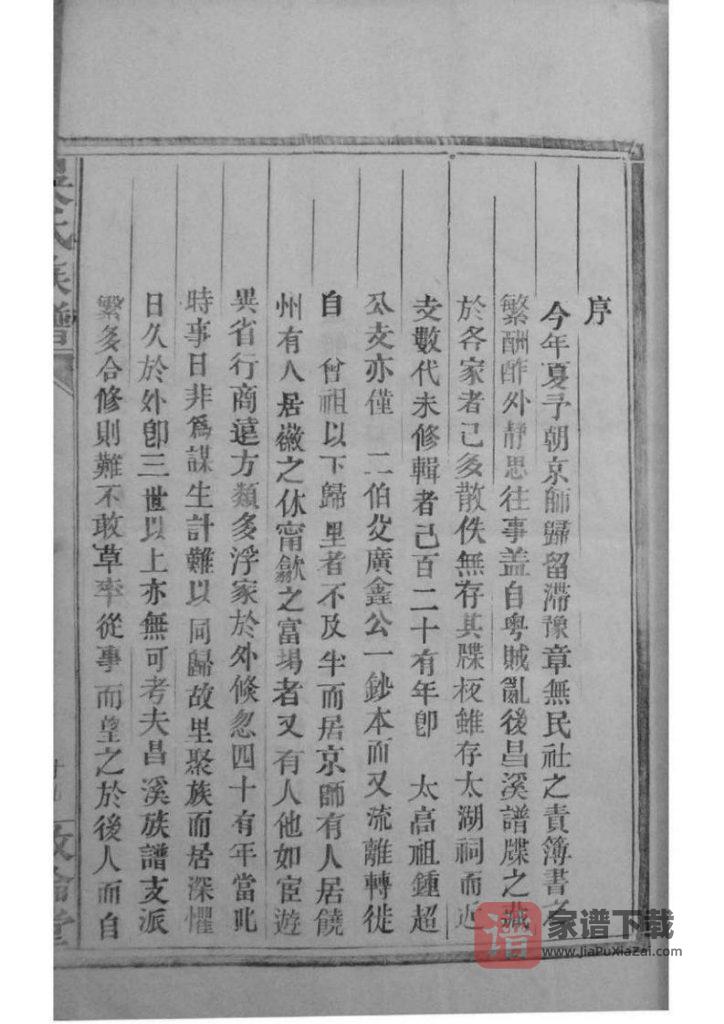 序
今年夏予朝京師歸留滯豫章無民社之責簿書之
繁酬酢外靜思往事盖自粤賊亂後昌溪譜牒之藏
於各家者已多散佚無存其牒板雖存太湖祠而近
支數代未修輯者己百二十有年卽 太高祖鍾超
公支亦僅 二伯父廣鑫公一鈔本而又流離轉徙
自 曾祖以下歸里者不及半而居京師有人居饒
州有人居徽之休甯歙之富堨者又有人他如宦遊
異省行商遠方類多浮家於外倏忽四十有年當此
時事日非爲謀生計難以同歸故里聚族而居深懼
日久於外卽三世以上亦無可考夫昌溪族譜支派
繁多合修則難不敢草率從事而望之於後人而自
吴氏族譜
敘倫堂
譜 家谱下载
www.JiaPuXiaZai.com